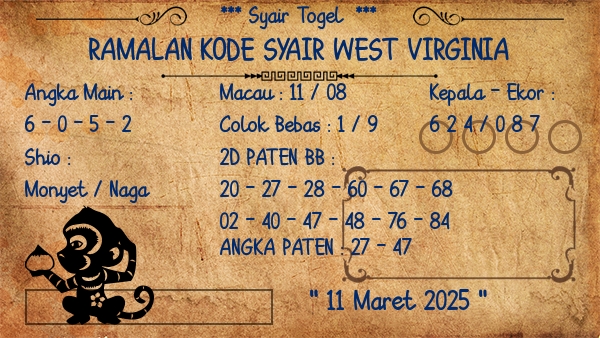 *** Syair Togel ***
RAMALAN KODE SYAIR WEST VIRGINIA
Angka Main :
6 - 0 - 5 - 2
Shio :
Monyet / Naga
Macau : 11 / 08
Colok Bebas : 1 / 9
2D PATEN BB :
20 - 27 - 28 - 60 - 67 - 68
02 - 40 - 47 - 48 - 76 - 84
ANGKA PATEN : 27 - 47
Kepala - Ekor :
6 2 4 / 0 8 7
" 11 Maret 2025 "